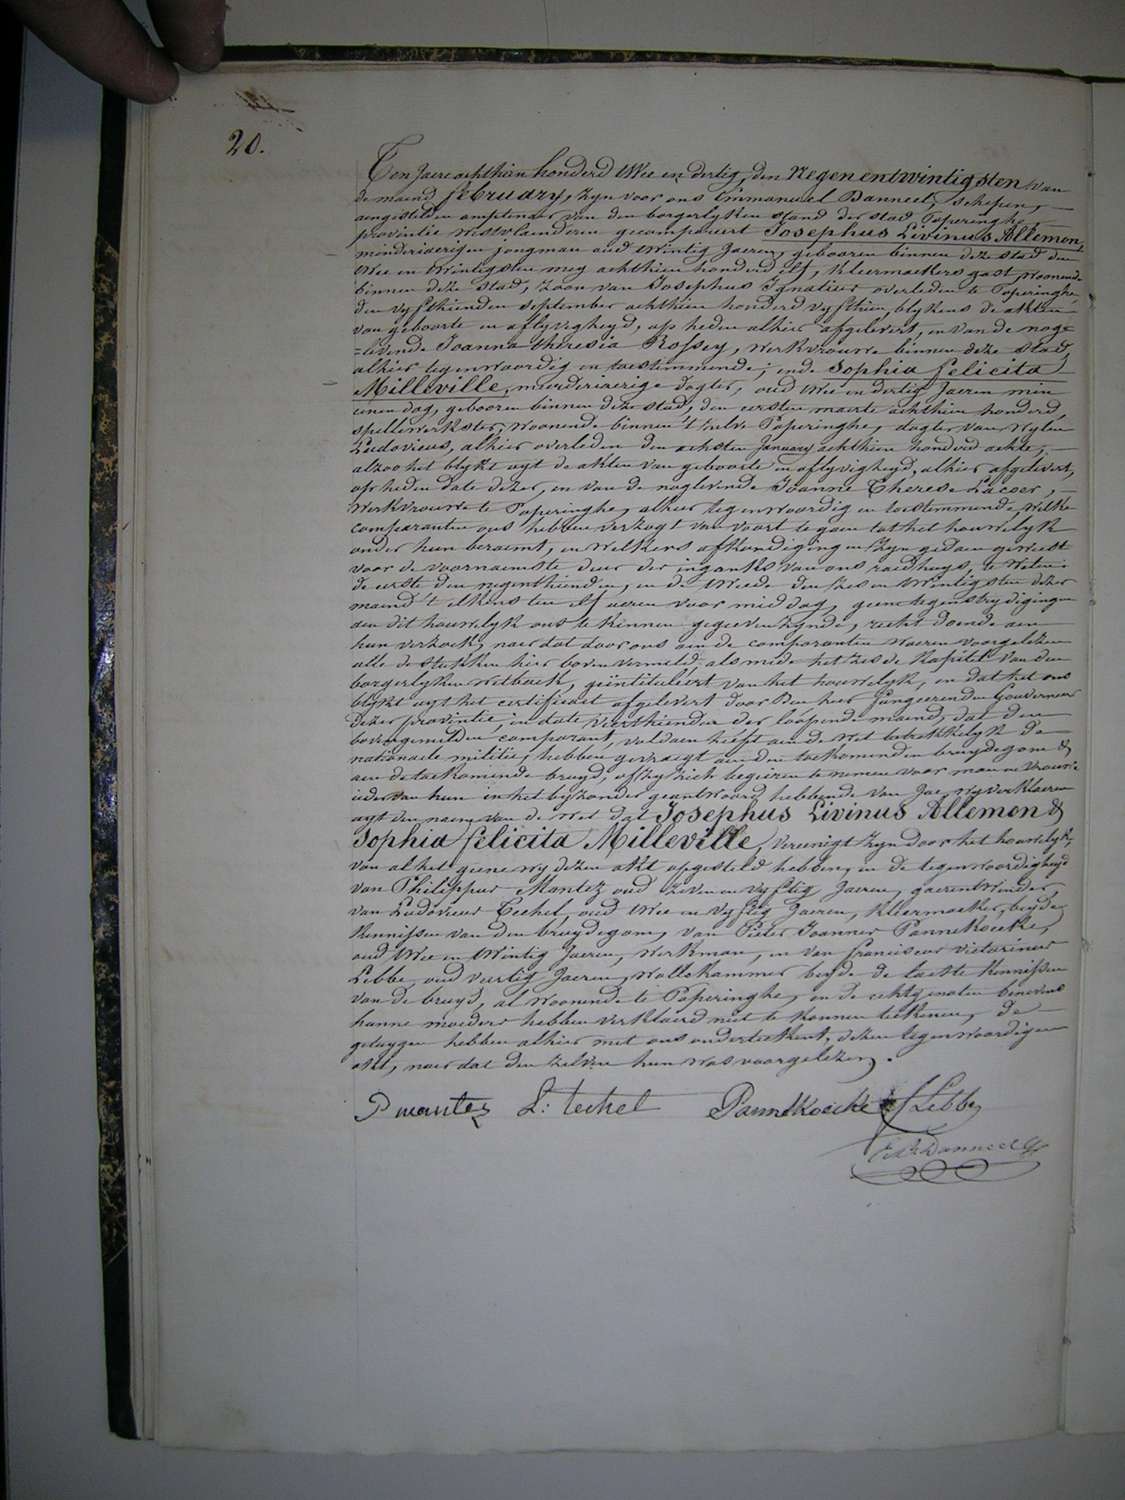 20.
Ten Jaere achthien honderd twee en dertig, den Negen entwintigsten van
de maend february, zyn voor ons Emmanuel Danneel, schepen,
aengestelden amptenaer van den borgerlyken stand der stad Poperinghe,
provintie westvlaenderen gecompareert Josephus Livinus Allemon,
minderiaerigen jongman oud twintig Jaeren, gebooren binnen deze stad den
twee en twintigsten mey achthien honderd elf, kleermaekers gast, woonende
binnen deze stad, zoon van Josephus Ignatius overleden te Poperinghe,
den vyfthienden september achthien honderd vyfthien, blykens de akten
van geboorte en aflyvigheyd, op heden alhier afgelevert, en van de nog=
=levende Joanna theresia Rossey, werkvrouwe binnen deze stad,
alhier tegenwoordig en toestemmende; ende Sophia felicita
Milleville, meerderiaerige dogter, oud twee en dertig Jaeren min
eenen dag, gebooren binnen deze stad, den eersten maerte achthien honderd,
spellewerkster, woonende binnen 't zelve Poperinghe, dogter van wylen
Ludovicus, alhier overleden den achsten January achthien honderd achte,
alzoo het blykt uyt de akten van geboorte en aflyvigheyd, alhier afgelevert,
op heden date dezer, en van de noglevende Joanne Therese Lacoer,
werkvrouwe te Poperinghe, alhier tegenwoordig en toestemmende, welke
comparanten ons hebben verzogt van voort te gaen tot het houwelyk
onder hun beraemt, en welkers afkondigingen zyn gedaen geweest
voor de voornaemste deur der ingank van ons raedhuys, te weten:
de eerste den negenthienden, en de tweede den zes en twintigsten dezer
maend 't elkens ten elf ueren voor middag, geene tegenstrydigingen
aen dit houwelyk ons te kennen gegeeven zynde, recht doende aen
hun verzoek, naer dat door ons aen de comparanten waeren voorgelezen
alle de stukken hier boven vermeld, als mede het zesde Kapitel van den
borgerlyken wetboek, geïntituleert van het houwelyk, en dat het ons
blykt uyt het certificaet afgelevert door den heer fungeerenden Gouverneur
dezer provintie, in date veerthienden der loopende maend, dat den
bovengemelden comparant, voldaen heeft aen de wet betrekkelyk de
nationaele militie, hebben gevraegt aen den toekomenden bruydegom &
aen de toekomende bruyd, of zy zich begeiren te nemen voor man en vrouwe
ieder van hun in het byzonder geantwoord hebbende van Jae, wy verklaeren
uyt den naem van de wet dat Josephus Livinus Allemon &
Sophia felicita Milleville, vereenigt zyn door het houwelyk,
van al het geene wy dezen akt opgesteld hebben, en de tegenwoordigheyd
van Philippus Mantez oud zeven en vyftig Jaeren, gaerentwynder,
van Ludovicus Techel, oud twee en vyftig Jaeren, kleermaeker, beyde
kennissen van den bruydegom, van Pieter Joannes Pannekoecke,
oud twee en twintig Jaeren, werkman, en van franciscus victorinus
Lebbe, oud veertig Jaeren, wollekammer beyde de laeste kennissen
van de bruyd, al woonende te Poperinghe, en de echtgenoten benevens
hunne moeders hebben verklaerd niet te konnen teekenen, de
getuygen hebben alhier met ons onderteekent, dezen tegenwoordigen
akt, naer dat den zelven hun was voorgelezen.
P mantez L: techel Pannekoecke f Lebbe
Em Danneel